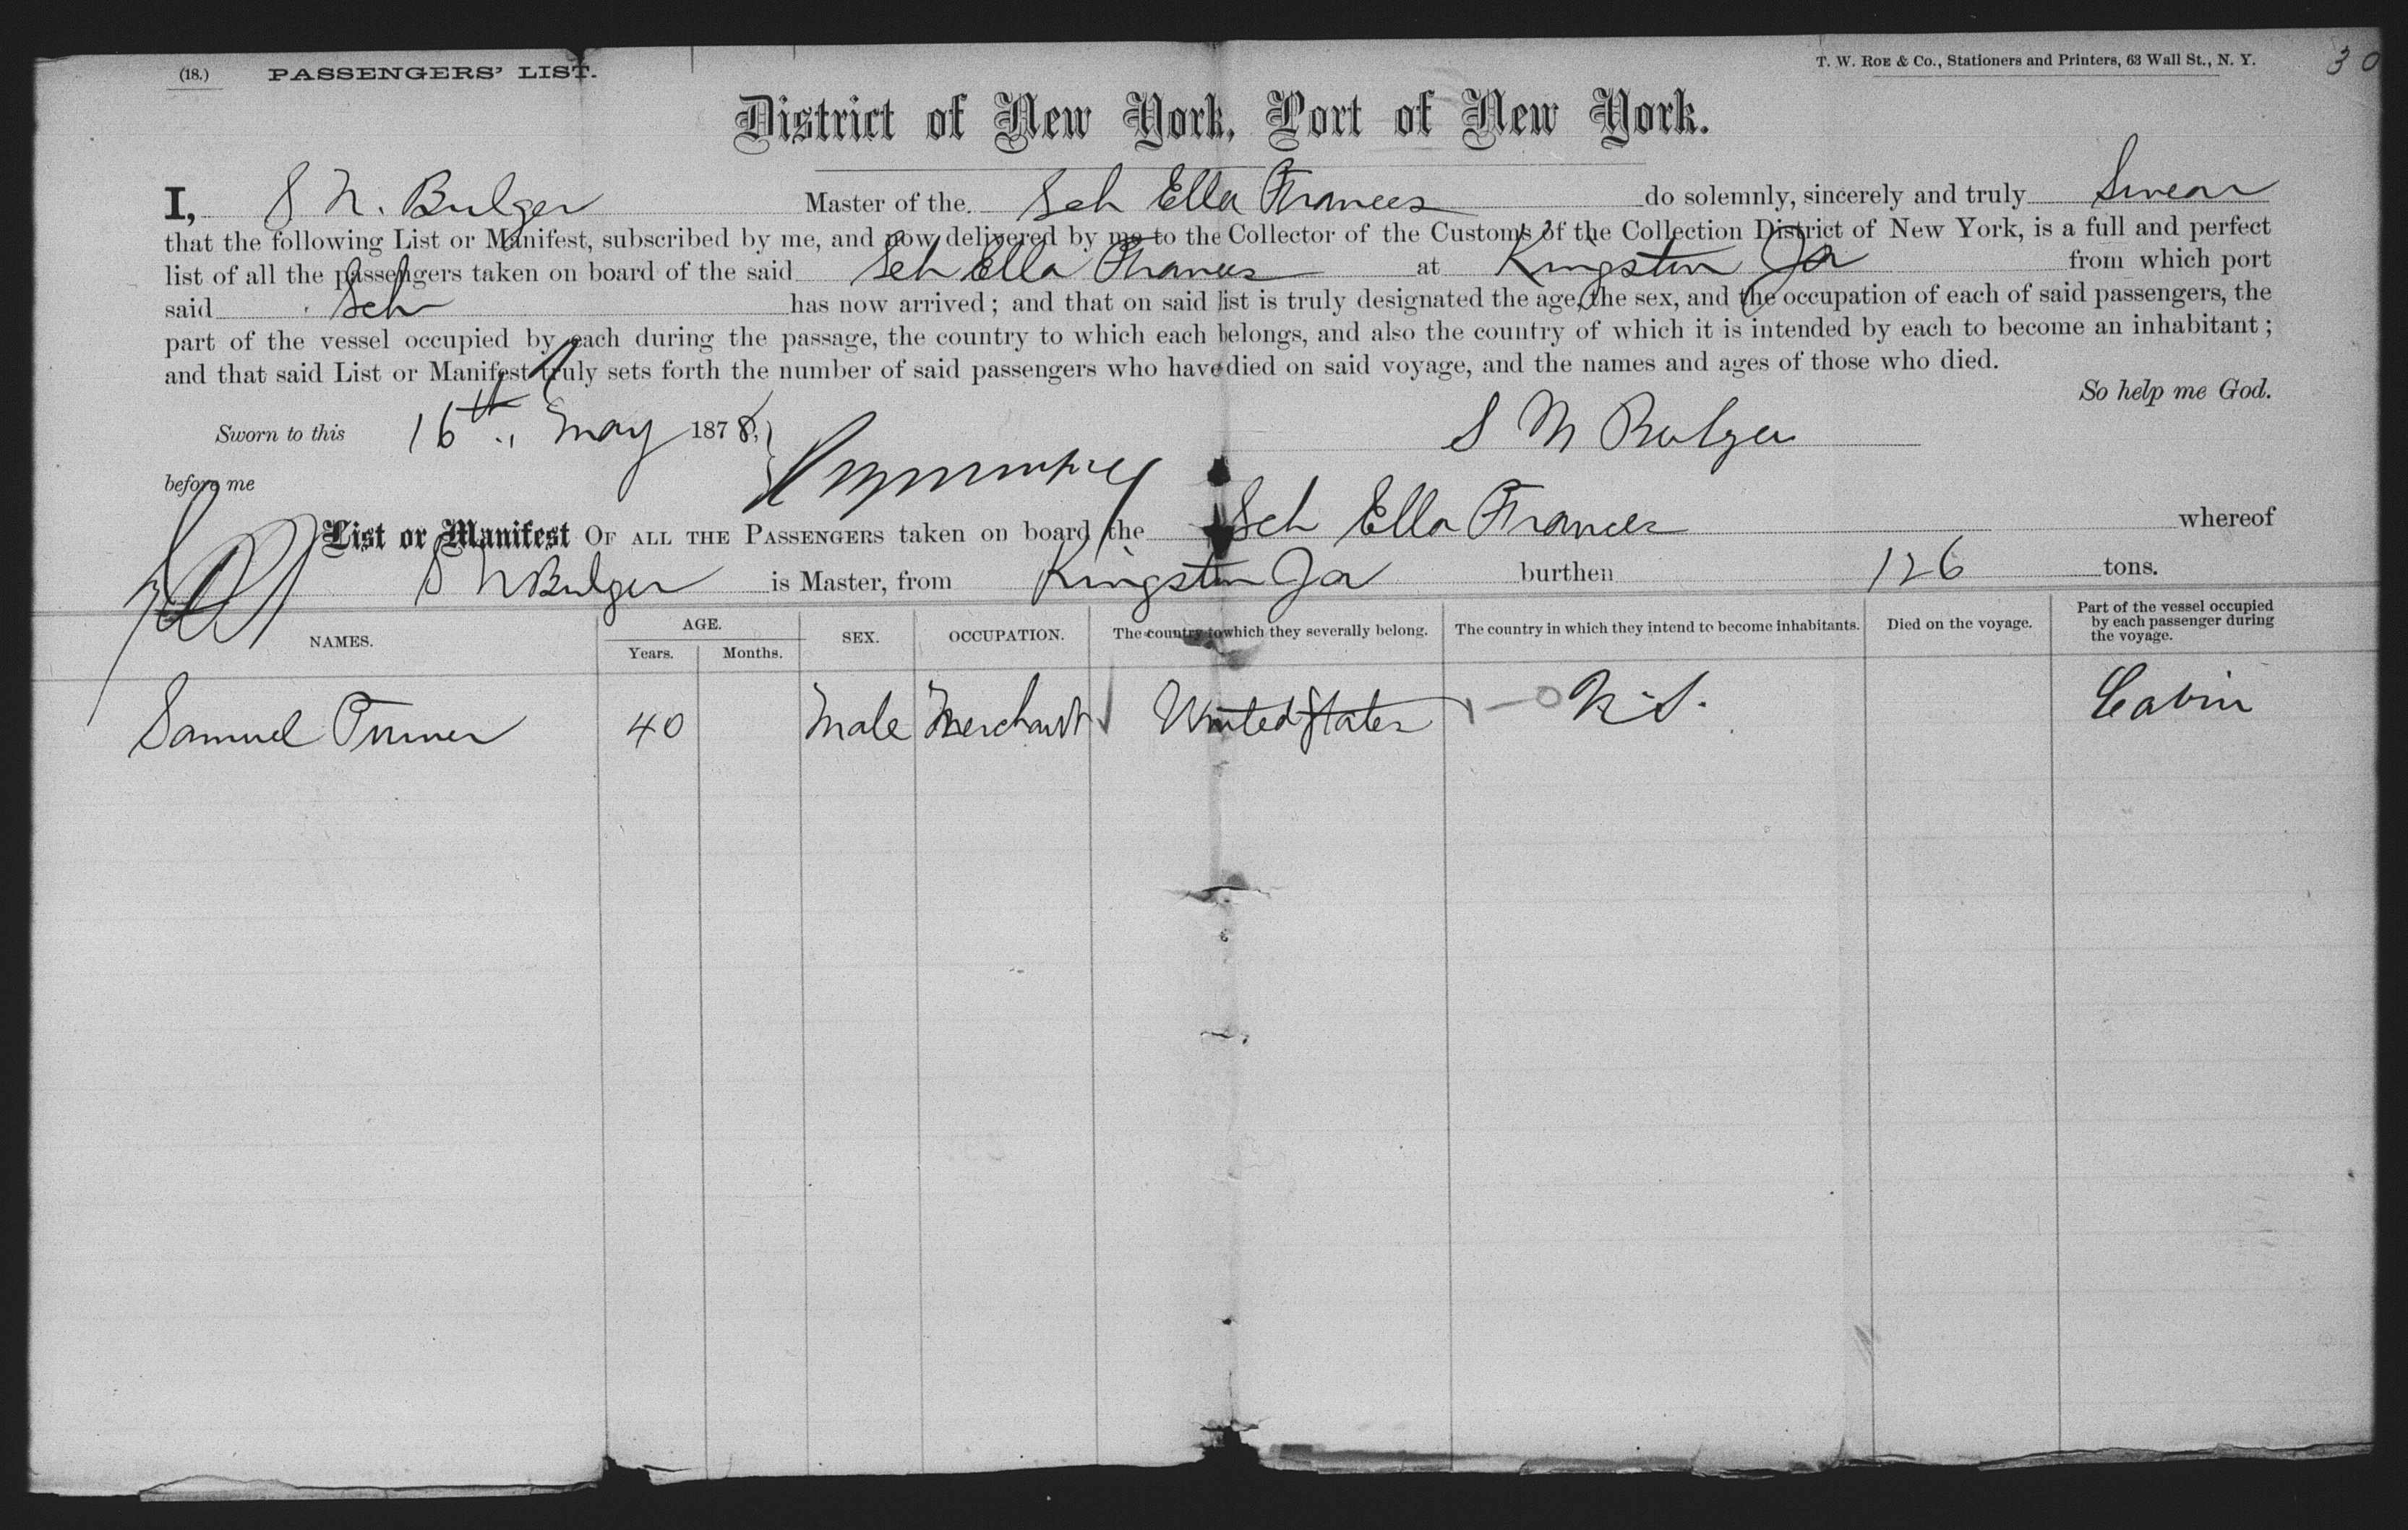 (18.) PASSENGERS' LIST.
T. W. Roe & Co., Stationers and Printers, 63 Wall St., N. Y.
30
District of New York, Port of New York.
I, S N. Bulger Master of the Sch Ella Frances do solemnly, sincerely and truly Swear
that the following List or Manifest, subscribed by me, and now delivered by me to the Collector of the Customs of the Collection District of New York, is a full and perfect
list of all the passengers taken on board of the said Sch Ella Frances at Kingston Ja from which port
said Sch has now arrived; and that on said list is truly designated the age, the sex, and the occupation of each of said passengers, the
part of the vessel occupied by each during the passage, the country to which each belongs, and also the country of which it is intended by each to become an inhabitant;
and that said List or Manifest truly sets forth the number of said passengers who have died on said voyage, and the names and ages of those who died.
So help me God.
Sworn to this 16th May 1878,
S N Bulger
before me
List or Manifest OF ALL THE PASSENGERS taken on board the Sch Ella Frances whereof
S N Bulger is Master, from Kingston Ja burthen 126 tons.
NAMES. AGE. Years. Months. SEX. OCCUPATION. The country to which they severally belong. The country in which they intend to become inhabitants. Died on the voyage. Part of the vessel occupied by each passenger during the voyage.
Samuel 40 Male Merchant United States Cabin